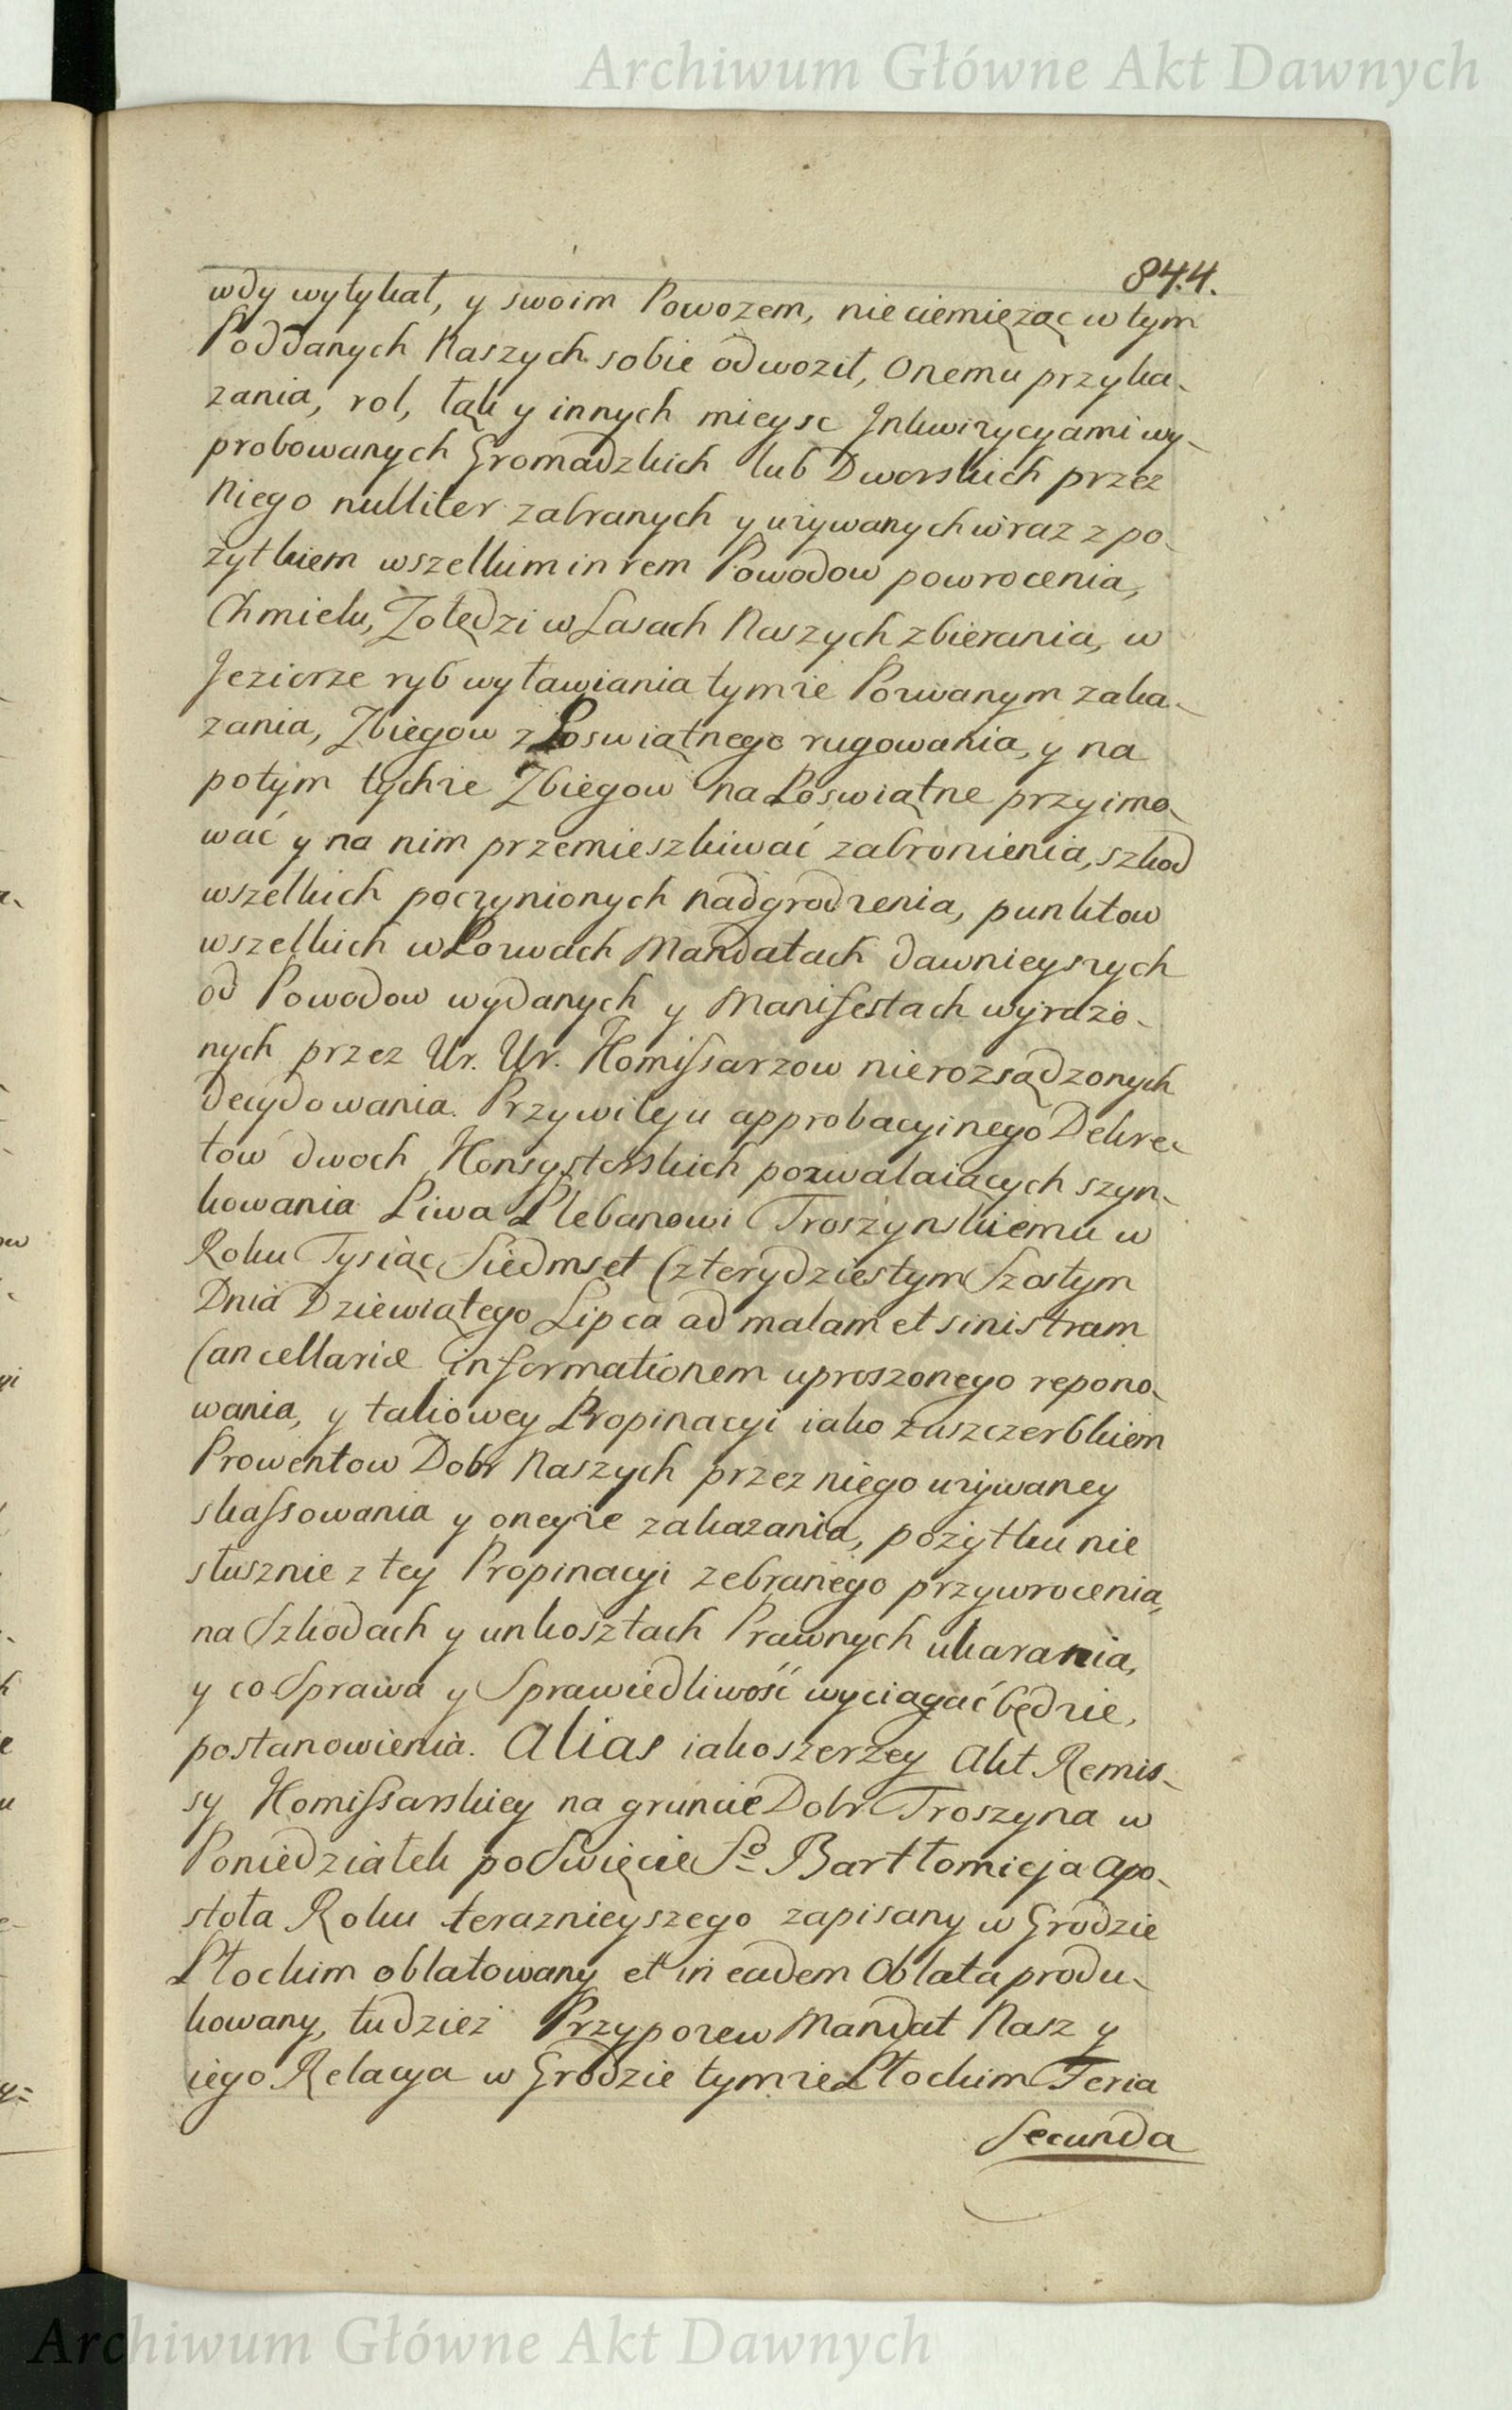 Archiwum Główne Akt Dawnych
844.
wdy wytykał, y swoim Powozem, nieciemiężąc w tym
Poddanych Naszych sobie odwoził, Onemu przyka-
zania, rol, tak y innych mieysc Inkwizycyami wy-
probowanych Gromadzkich lub Dworskich przez
Niego nulliter zabranych y używanych wraz z po-
żytkiem wszelkim in rem Powodow powrocenia,
Chmielu, Zołędzi w Lasach Naszych zbierania, w
Jeziorze ryb wyławiania tymże Pozwanym zaka-
zania, Zbiegow z Poswiątnego rugowania, y na
potym tychże Zbiegow na Poswiątne przyimo-
wać y na nim przemieszkiwać zabronienia, szkod
wszelkich poczynionych nadgrodzenia, punktow
wszelkich w Pozwach Mandatach dawnieyszych
od Powodow wydanych y Manifestach wyrażo-
nych przez Ur. Ur. Kommissarzow nierozsądzonych
decydowania. Przywileju approbacyinego Dekre-
tow dwoch Konsystorskich pozwalaiących szyn-
kowania Piwa Plebanowi Troszynskiemu w
Roku Tysiąc Siedmset Czterydziestym Szostym
Dnia Dziewiątego Lipca ad malam et sinistram
Cancellariæ informationem uproszonego repono-
wania, y takowey Propinacyi iako z uszczerbkiem
Prowentow Dobr Naszych przez niego używaney
skassowania y oneyże zakazania, pożytku nie
słusznie z tey Propinacyi zebranego przywrocenia,
na Szkodach y unkosztach Prawnych ukarania,
y co Sprawa y Sprawiedliwość wyciągać będzie,
postanowienia. Alias iako szerzey Akt Remis-
sy Komissarskiey na gruncie Dobr Troszyna w
Poniedziałek po Swięcie So Bartłomieja Apo-
stoła Roku teraznieyszego zapisany w Grodzie
Płockim oblatowany et in eadem Oblata produ-
kowany, tudzież Przypozew Mandat Nasz y
iego Relacya w Grodzie tymże Płockim Feria
Secunda
Archiwum Główne Akt Dawnych